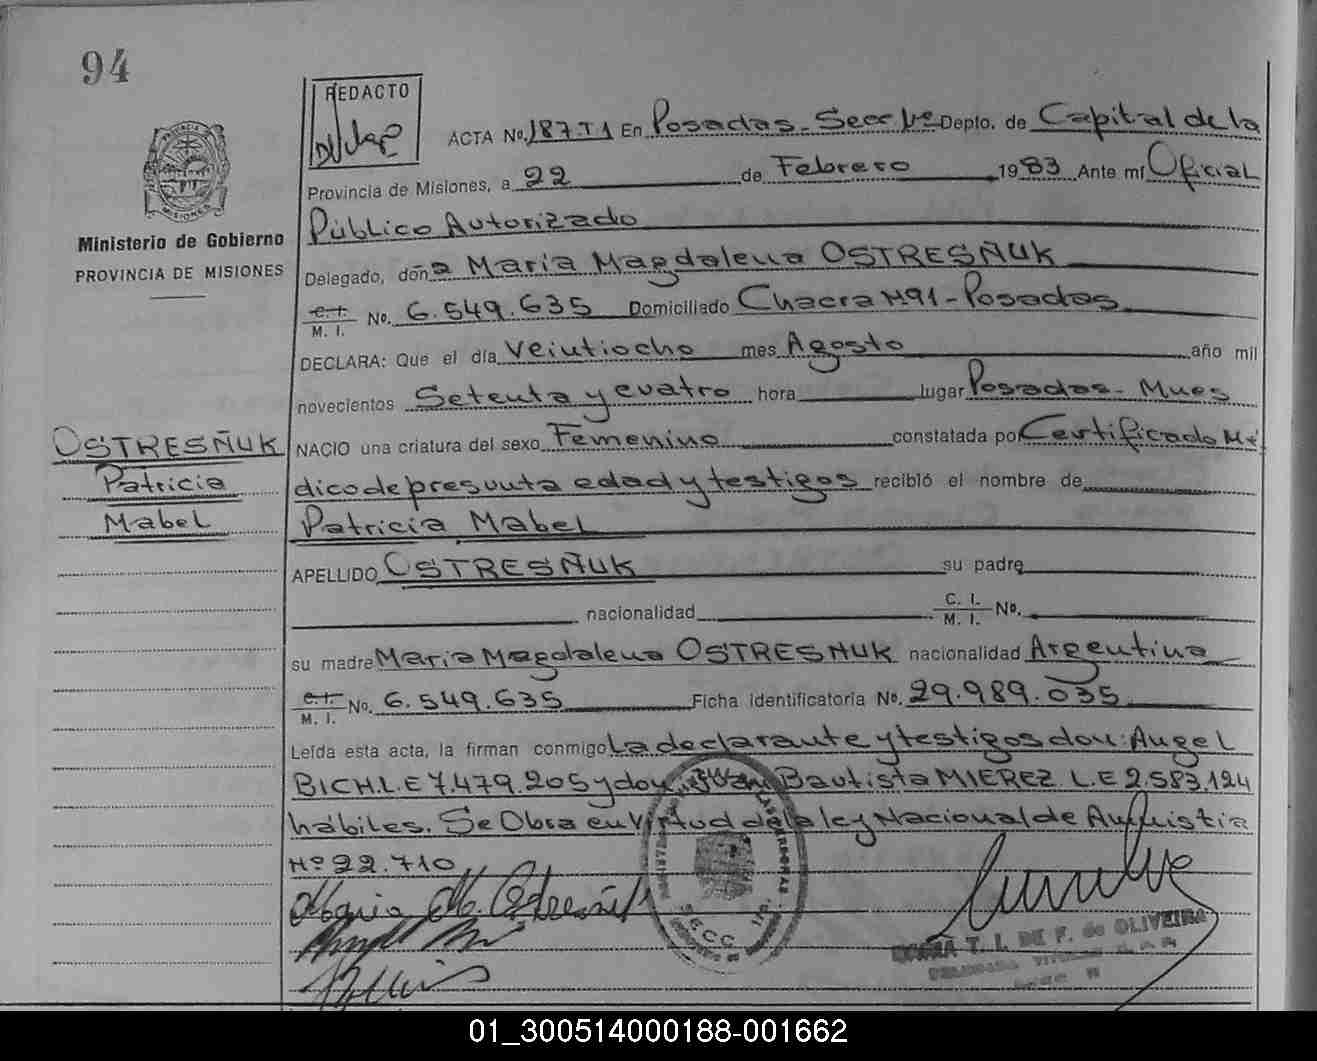 94
REDACTO
ACTA No. 187.T1 En Posadas - Secc 1ª Depto. de Capital de la
PROVINCIA DE MISIONES
Provincia de Misiones, a 22 de Febrero 1983 Ante mí Oficial
Público Autorizado
Ministerio de Gobierno
PROVINCIA DE MISIONES
Delegado, doña Maria Magdalena OSTRESÑUK
C. I.
M. I. No. 6.549.635 Domiciliado Chacra Nº 91 - Posadas
DECLARA: Que el día Veintiocho mes Agosto año mil
novecientos Setenta y cuatro hora lugar Posadas - Mnes
OSTRESÑUK
Patricia
Mabel
NACIO una criatura del sexo Femenino constatada por Certificado Mé
dico de presunta edad y testigos recibió el nombre de
Patricia Mabel
APELLIDO OSTRESÑUK su padre
nacionalidad C. I. M. I. No.
su madre Maria Magdalena OSTRESÑUK nacionalidad Argentina
C. I.
M. I. No. 6.549.635 Ficha identificatoria No. 29.989.035
Leída esta acta, la firman conmigo La declarante y testigos don: Angel
BICH L.E 7.479.205 y don Juan Bautista MIEREZ L.E 2.583.124
hábiles. Se Obra en Virtud de la ley Nacional de Amnistia
Nº 22.710
Maria M. Ostresñuk
SECC
T. I. DE F. de OLIVEIRA
01_300514000188-001662